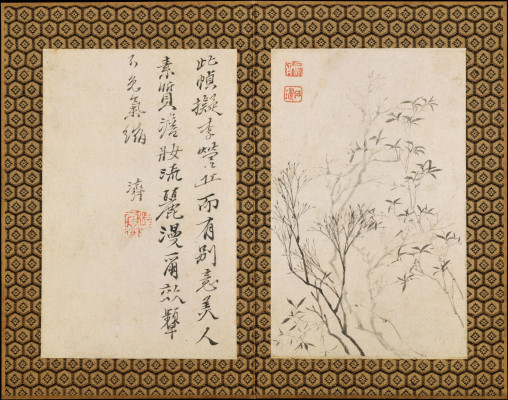 此幀擬李營丘而有別意美人
素質澹妝流麗漫爾效顰
不免氣縮
濟